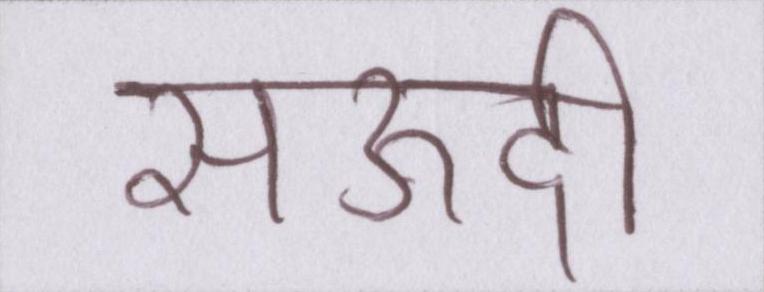 सऊदी